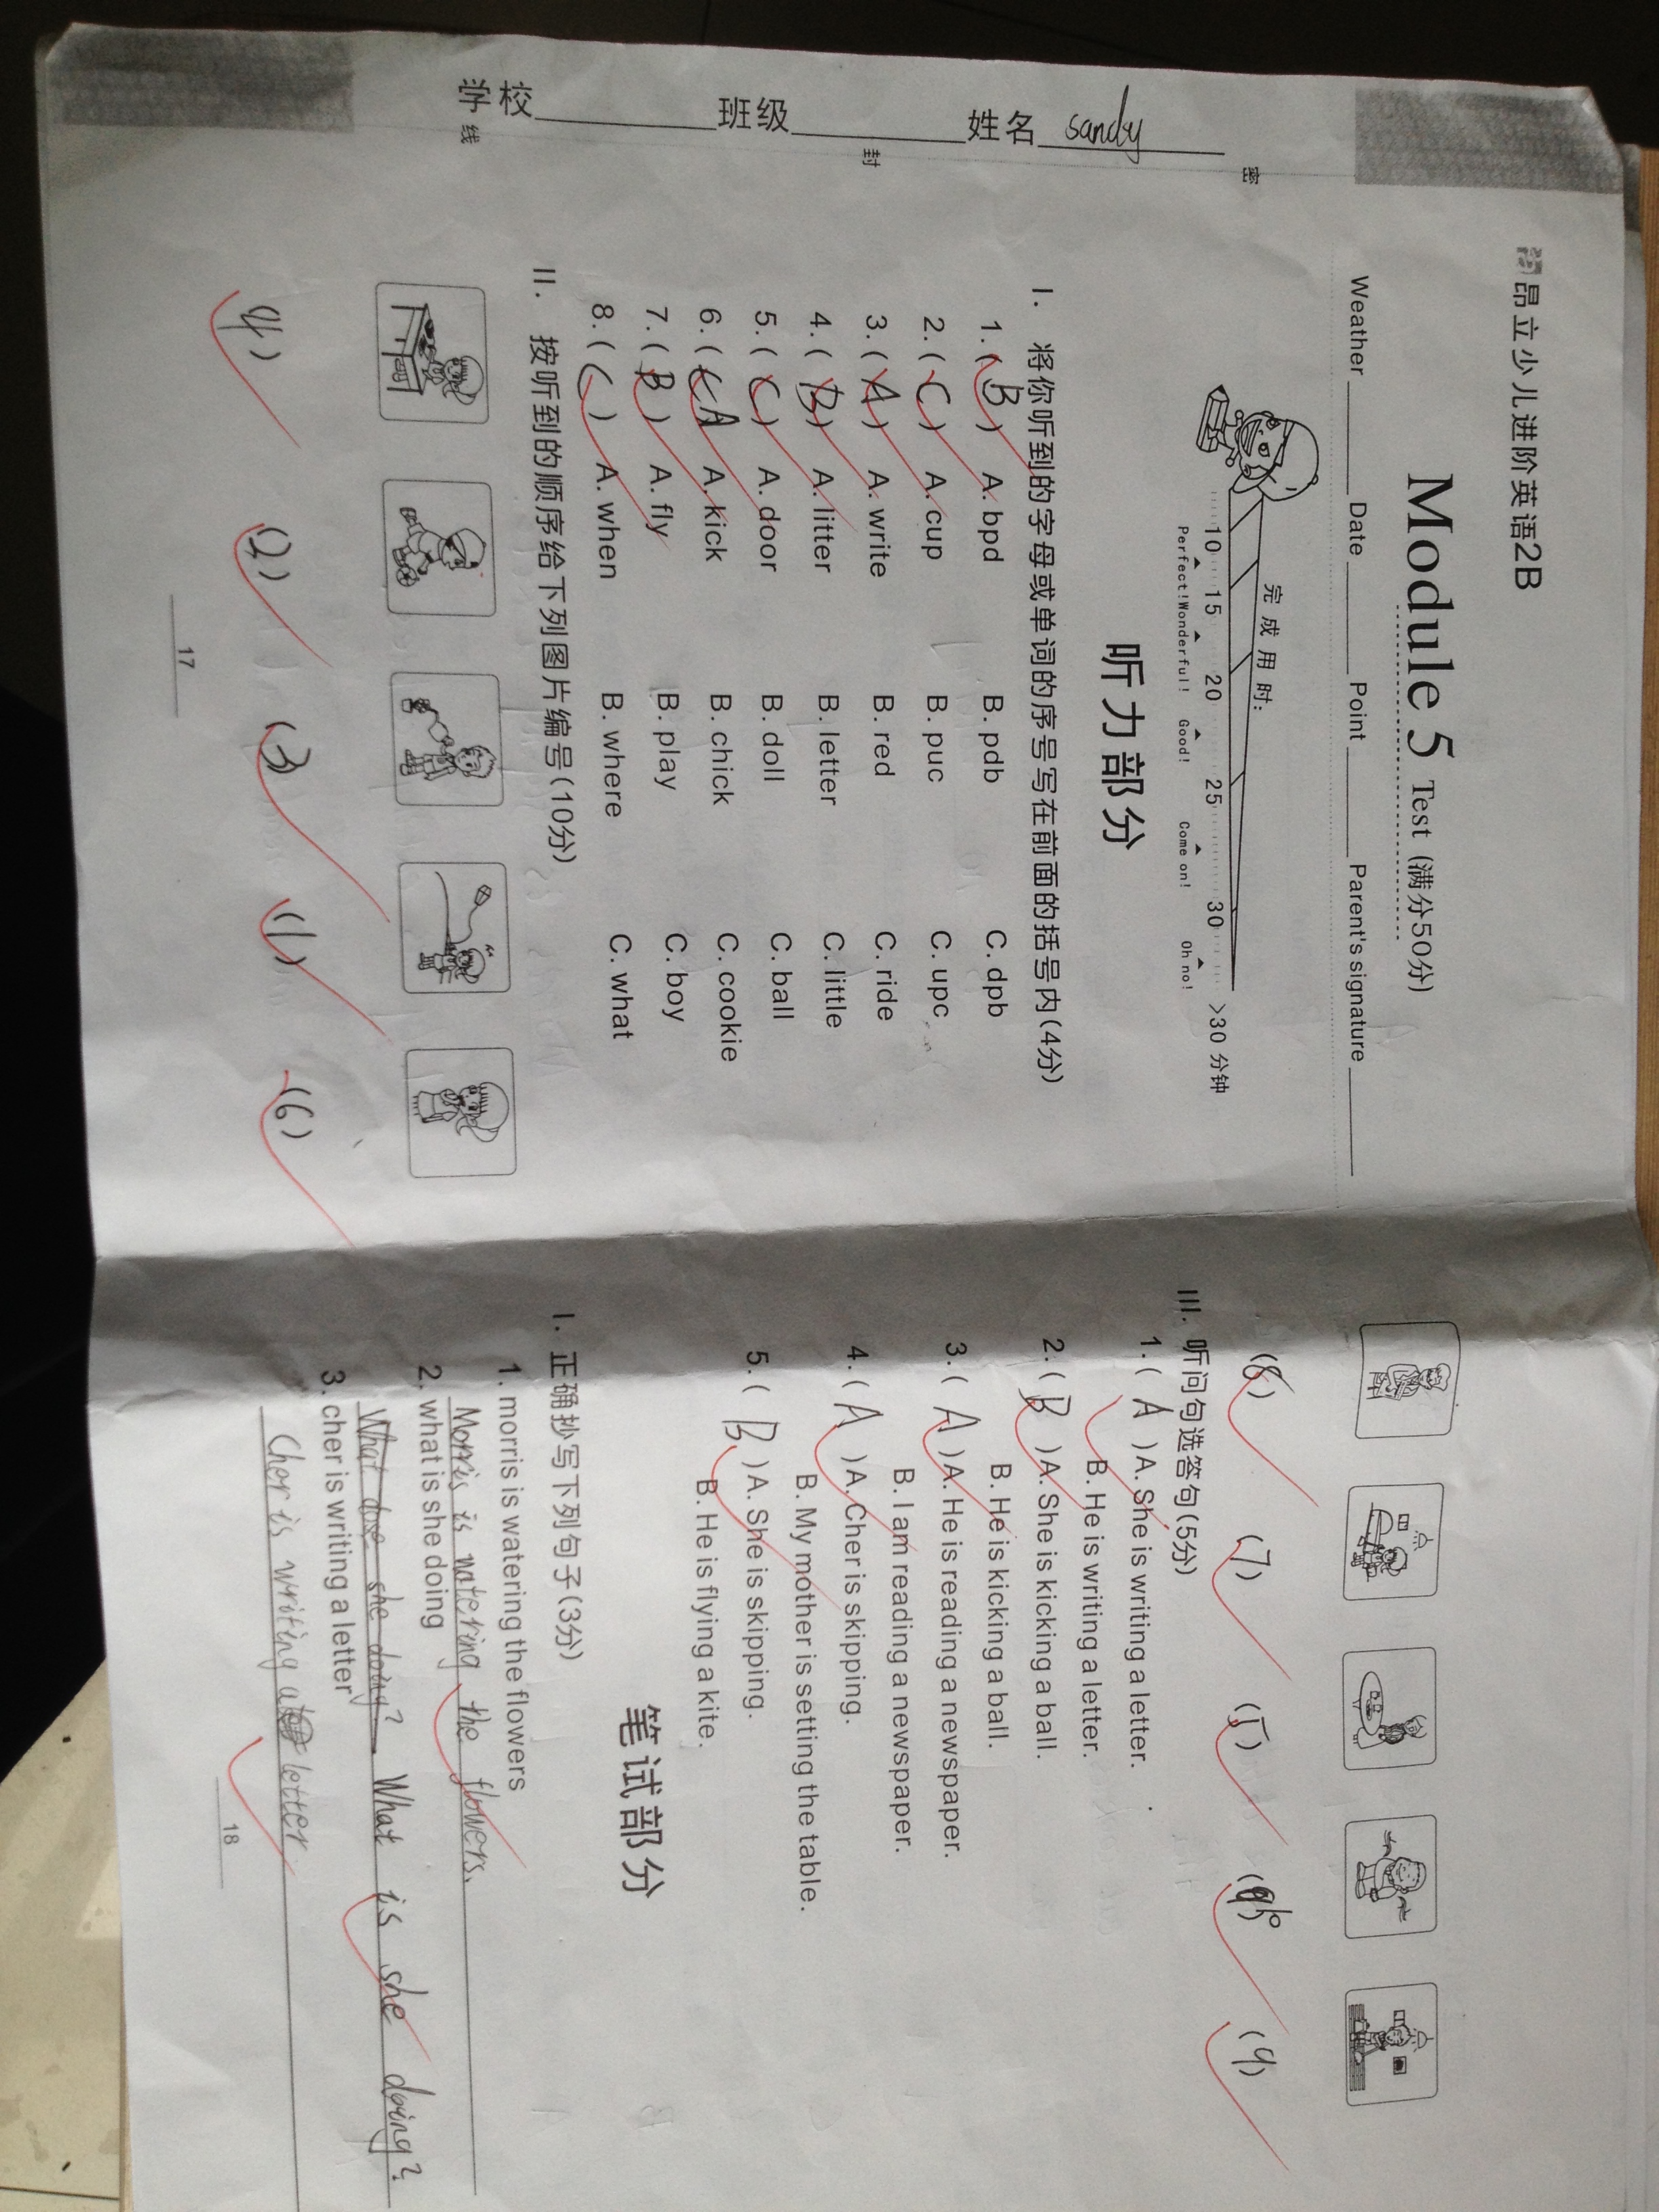 昂立少儿进阶英语2B
Module 5 Test (满分50分)
Weather Date Point Parent's signature
完成用时:
10 15 20 25 30 >30 分钟
Perfect! Wonderful! Good! Come on! Oh no!
学校 班级 姓名 sandy
线 封 密
听力部分
I. 将你听到的字母或单词的序号写在前面的括号内(4分)
1. (B) A. bpd B. pdb C. dpb
2. (C) A. cup B. puc C. upc
3. (A) A. write B. red C. ride
4. (B) A. litter B. letter C. little
5. (C) A. door B. doll C. ball
6. (A) A. kick B. chick C. cookie
7. (B) A. fly B. play C. boy
8. (C) A. when B. where C. what
II. 按听到的顺序给下列图片编号(10分)
(4) (2) (3) (1) (6)
17
(8) (7) (5) (10) (9)
III. 听问句选答句(5分)
1. (A) A. She is writing a letter.
B. He is writing a letter.
2. (B) A. She is kicking a ball.
B. He is kicking a ball.
3. (A) A. He is reading a newspaper.
B. I am reading a newspaper.
4. (A) A. Cher is skipping.
B. My mother is setting the table.
5. (B) A. She is skipping.
B. He is flying a kite.
笔试部分
I. 正确抄写下列句子(3分)
1. morris is watering the flowers
Morris is watering the flowers.
2. what is she doing
What dose she doing? What is she doing?
3. cher is writing a letter
Cher is writing a letter
18